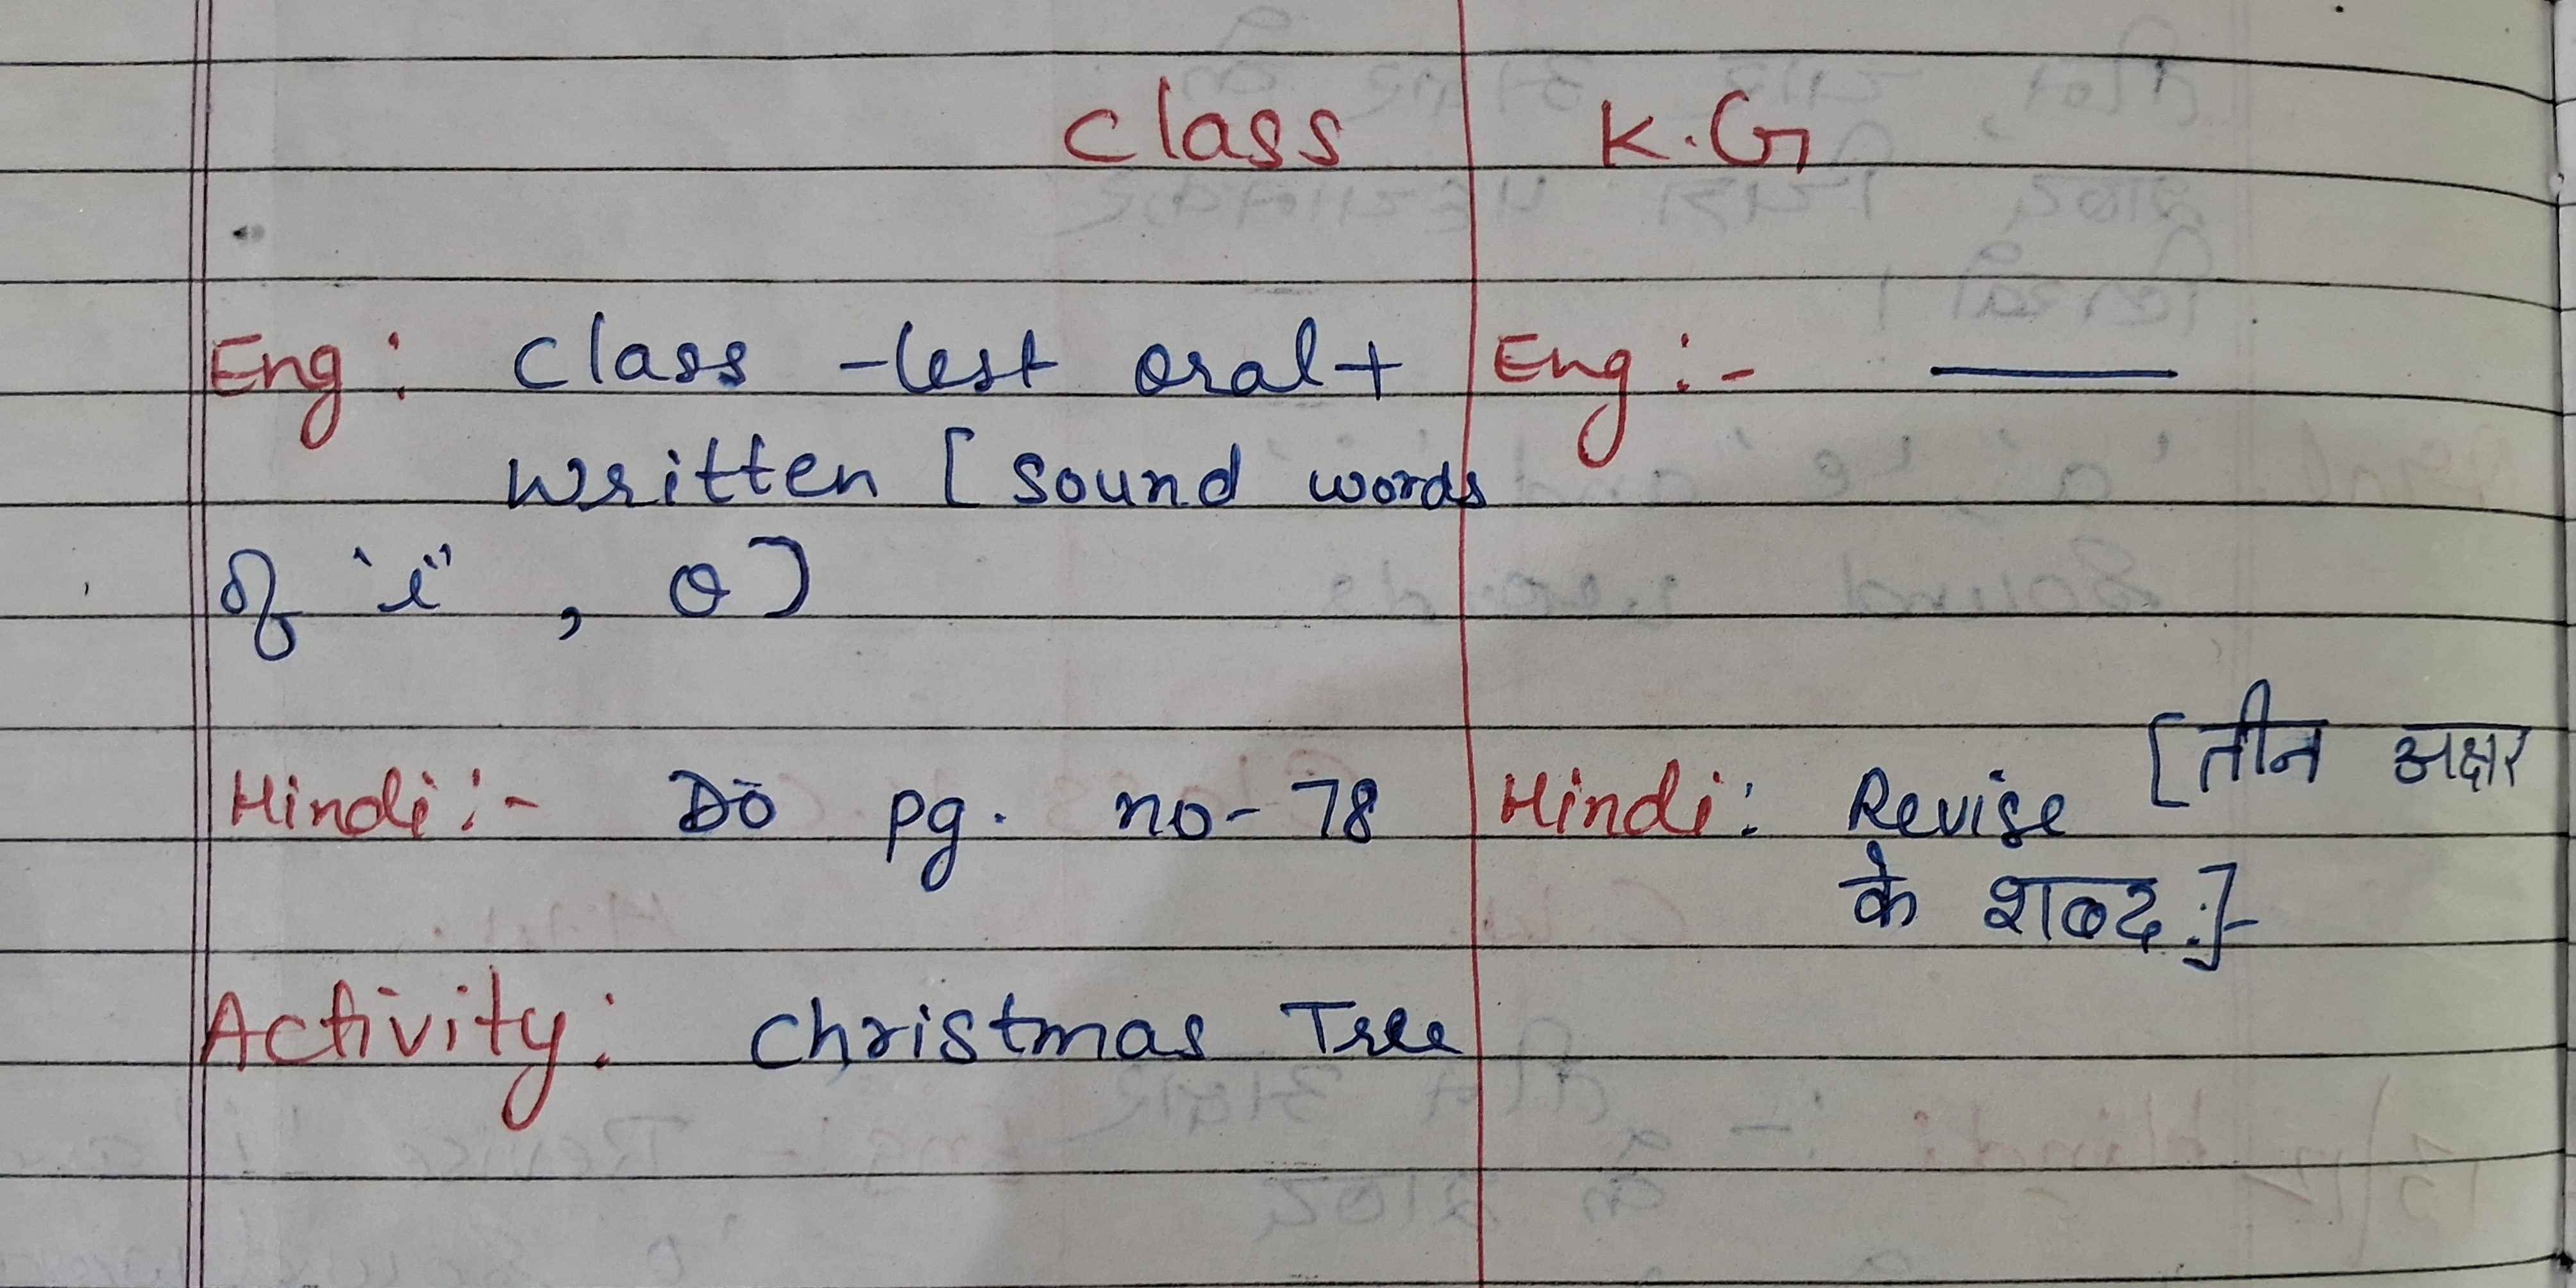 class K.G
Eng: class test oral + Eng :- ——
written [sound words
of "i", o]
Hindi :- Do pg. no- 78 Hindi: Revise [तीन अक्षर
के शब्द.]-
Activity: christmas Tree